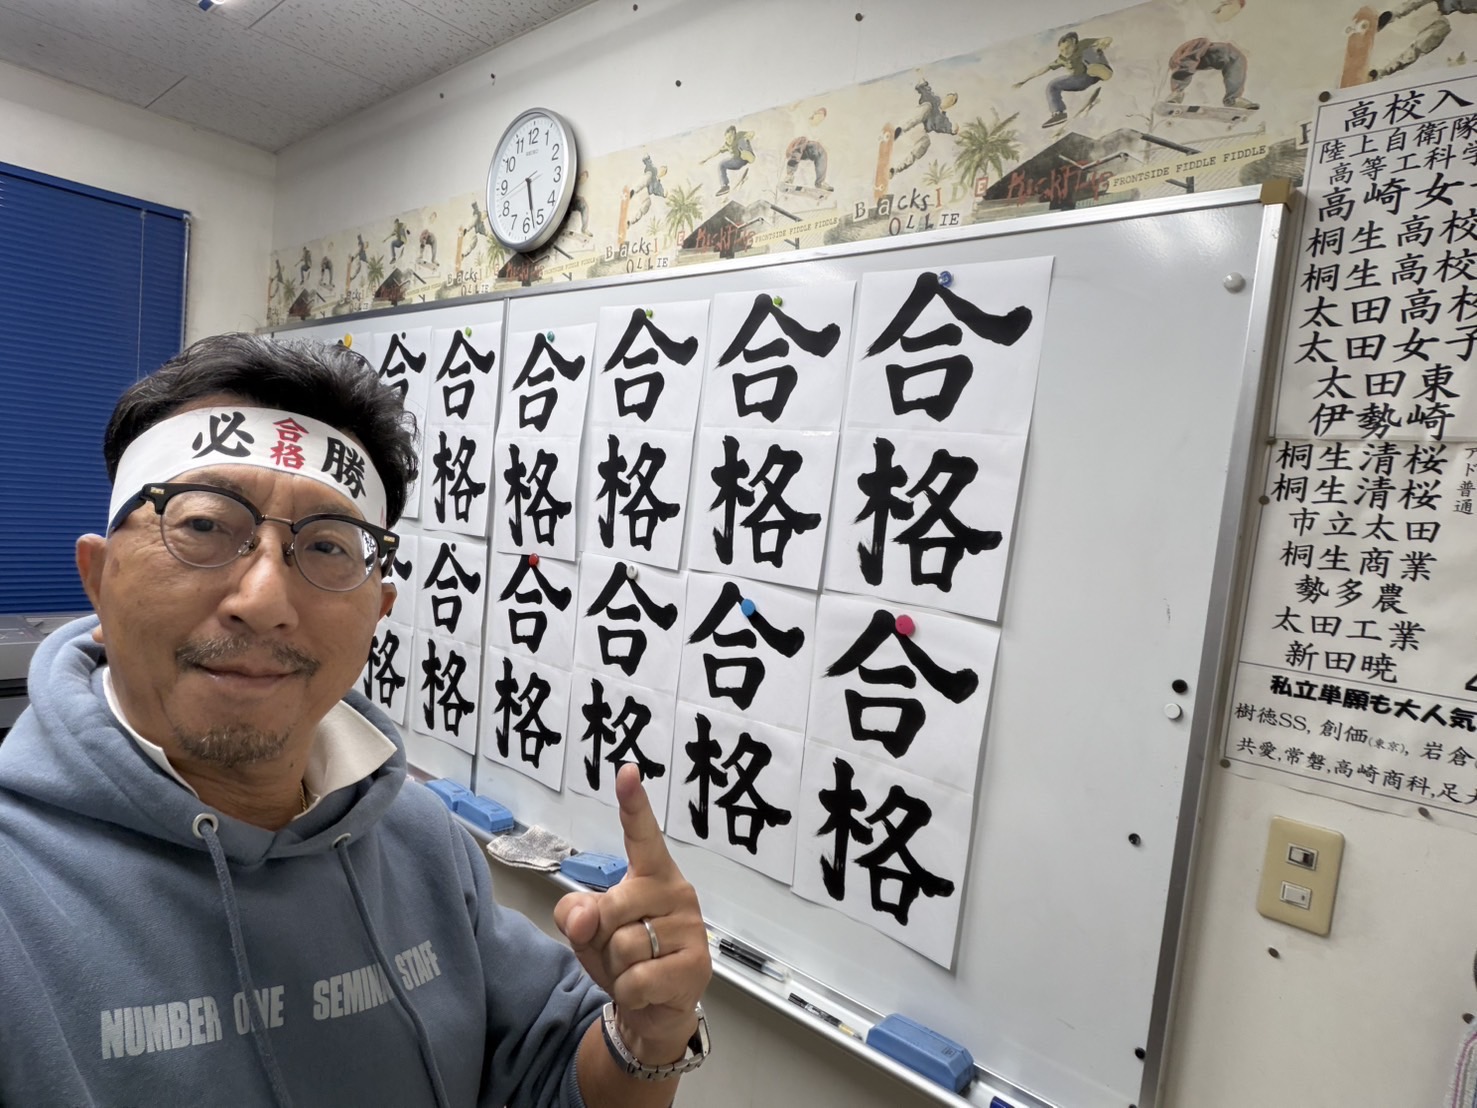 必合格勝
NUMBER ONE SEMINAR STAFF
12
1
2
3
4
5
6
7
8
9
10
11
SEIKO
BacksIDE KickFlip FRONTSIDE FIDDLE FIDDLE
OLLIE
BacksIDE KickFlip FRONTSIDE FIDDLE FIDDLE
OLLIE
BacksIDE KickFlip FRONTSIDE FIDDLE FIDDLE
OLLIE
合格
合格
合格
合格
合格
合格
合格
合格
合格
合格
合格
合格
合格
高校入
陸上自衛隊
高等工科学
高崎女子
桐生高校
桐生高校
太田高校
太田女子
太田東
伊勢崎
桐生清桜
桐生清桜
普通
市立太田
桐生商業
勢多農
太田工業
新田暁
私立単願も大人気
樹徳SS, 創価(東京), 岩倉
共愛,常磐,高崎商科,足大